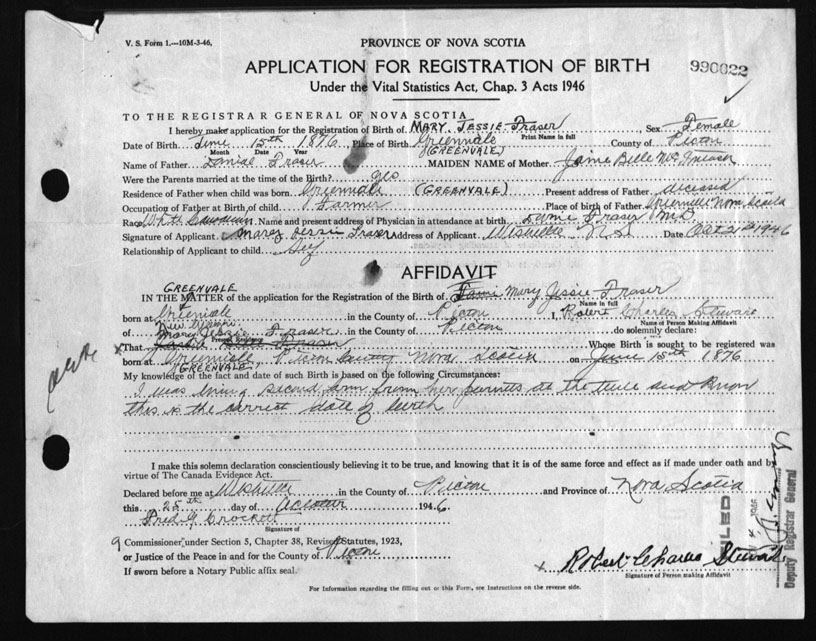 V. S. Form 1.—10M-3-46.
PROVINCE OF NOVA SCOTIA
APPLICATION FOR REGISTRATION OF BIRTH
990022
Under the Vital Statistics Act, Chap. 3 Acts 1946
TO THE REGISTRAR GENERAL OF NOVA SCOTIA
I hereby make application for the Registration of Birth of MARY JESSIE Fraser, Sex Female
Print Name in full
Date of Birth June 15th 1876 Place of Birth Greenvale County of Pictou
Month Day Year (GREENVALE)
Name of Father Daniel Fraser MAIDEN NAME of Mother Jamie Belle
Were the Parents married at time of the Birth? yes
Residence of Father when child was born Greenvale (GREENVALE) Present address of Father deceased
Occupation of Father at Birth of child Farmer Place of birth of Father Nova Scotia
Race White Name and present address of Physician in attendance at birth Fraser M.D.
Signature of Applicant Mary Jessie Fraser Address of Applicant Westville N.S. Date Oct 21st 1946
Relationship of Applicant to child Self
AFFIDAVIT
GREENVALE
IN THE MATTER of the application for the Registration of Birth of Mary Jessie Fraser
Name in full
born at in the County of Pictou I, Robert Charles Stewart
Name of Person Making Affidavit
of in the County of Pictou do solemnly declare:
Present Residence
That Mary Jessie Fraser Whose Birth is sought to be registered was
born at Greenvale, Pictou County Nova Scotia on June 15th 1876
GREENVALE
My knowledge of the fact and date of such Birth is Based on the following Circumstances:
I was living second farm from her parents at the time and know
this is the correct date of birth
I make this solemn declaration conscientiously believing it to be true, and knowing that it is of the same force and effect as if made under oath and by
virtue of The Canada Evidence Act.
Declared before me at Westville in the County of Pictou and Province of Nova Scotia
this 25th day of October 1946
Fred G. Crockett
Signature of
Commissioner under Section 5, Chapter 38, Revised Statutes, 1923,
or Justice of the Peace in and for the County of Pictou
If sworn before a Notary Public affix seal.
x Robert Charles Stewart
Signature of Person making Affidavit
For Information regarding the filling out of this Form, see Instructions on the reverse side.
FILED
Deputy Registrar General